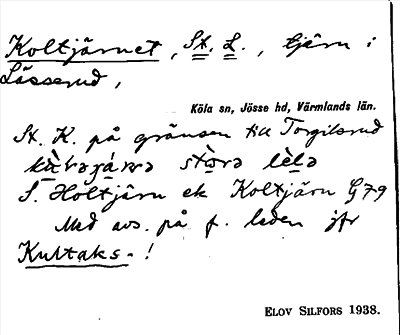 Koltjärnet, St. L., tjärn i
Lässerud,
Köla sn, Jösse hd, Värmlands län.
St. K. på gränsen till Torgilsrud
stòra lèla
S. Holtjärn ek Koltjärn G79
Med avs. på f. leden jfr
Kultaks- !
ELOV SILFORS 1938.